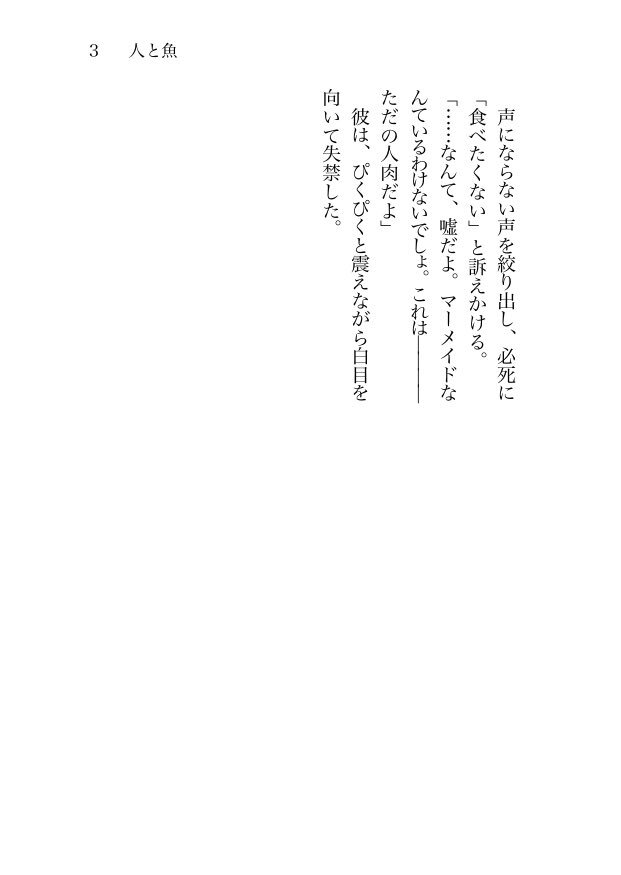 3　人と魚
　声にならない声を絞り出し、必死に
「食べたくない」と訴えかける。
「……なんて、嘘だよ。マーメイドな
んているわけないでしょ。これは――――
ただの人肉だよ」
　彼は、ぴくぴくと震えながら白目を
向いて失禁した。